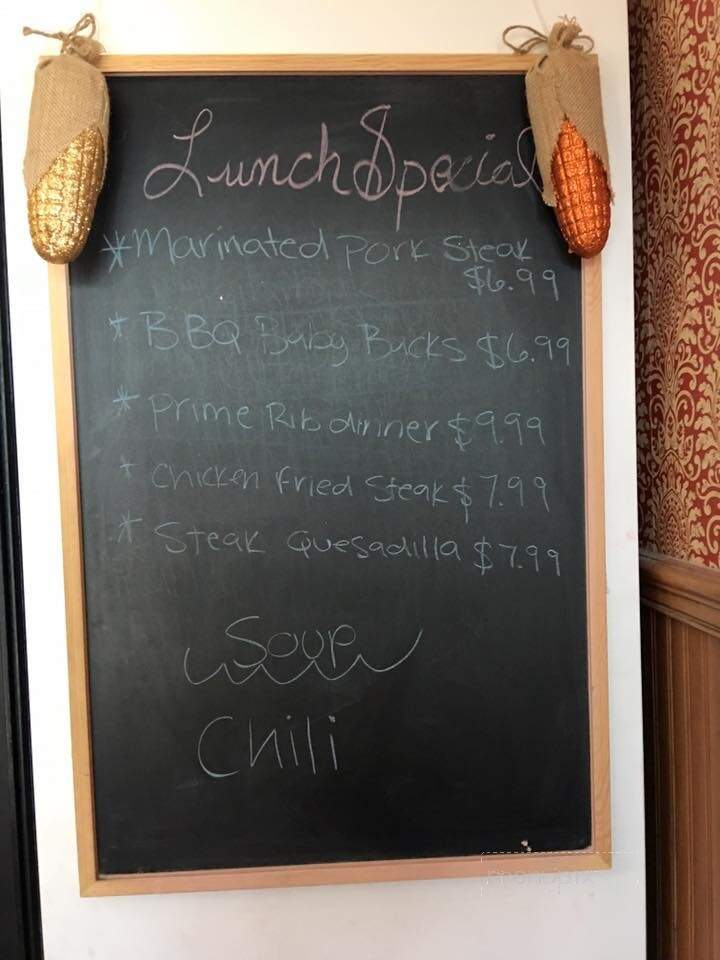 Lunch $pecial
* Marinated Pork Steak
$6.99
* BBQ Baby Backs $6.99
* Prime Rib dinner $9.99
* Chicken Fried Steak $7.99
* Steak Quesadilla $7.99
Soup
Chili